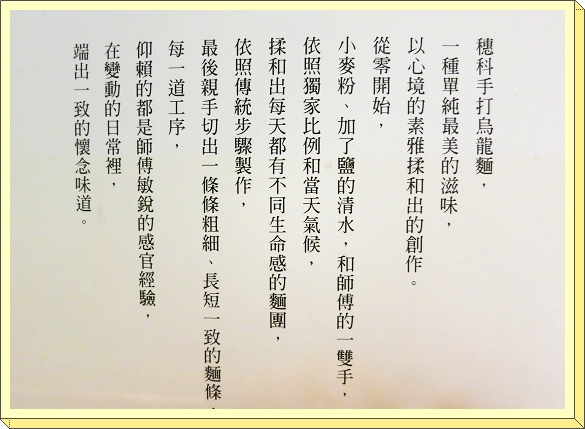 穗科手打烏龍麵，
一種單純最美的滋味，
以心境的素雅揉和出的創作。
從零開始，
小麥粉、加了鹽的清水，和師傅的一雙手，
依照獨家比例和當天氣候，
揉和出每天都有不同生命感的麵團，
依照傳統步驟製作，
最後親手切出一條條粗細、長短一致的麵條，
每一道工序，
仰賴的都是師傅敏銳的感官經驗，
在變動的日常裡，
端出一致的懷念味道。